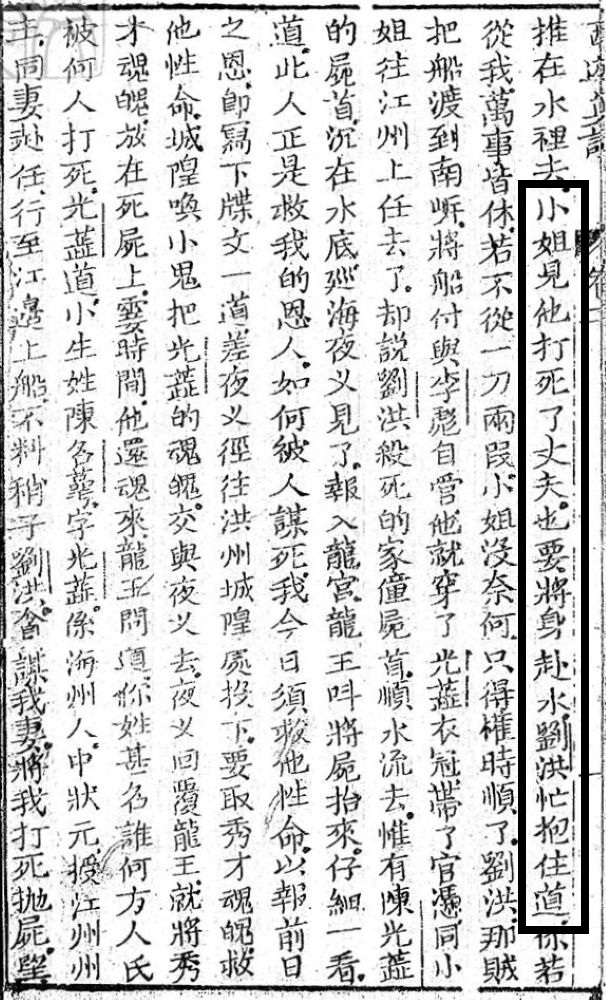 推在水裡去。小姐見他打死了丈夫。也要將身赴水。劉洪忙抱住道。你若
從我萬事皆休。若不從一刀兩段。小姐沒奈何。只得權時順了。劉洪那賊
把船渡到南岍。將船付與李彪自管。他就穿了光蕋衣冠。帶了官憑。同小
姐往江州上任去了。却說劉洪殺死的家僮屍首。順水流去。惟有陳光蕋
的屍首。沉在水底。廵海夜义見了。報入龍宮。龍王叫將屍抬來。仔細一看。
道。此人正是救我的恩人。如何彼人謀死。我今日須救他性命。以報前日
之恩。卽寫下牒文一道。差夜义徑往洪州城隍處投下。要取秀才魂魄。救
他性命。城隍喚小鬼把光蕋的魂魄。交與夜义去。夜义回覆龍王。就將秀
才魂魄。放在死屍上。霎時間。他還魂來。龍王問道。你姓甚名誰何方人氏
被何人打死。光蕋道。小生姓陳名蕚。字光蕋。係海州人。中狀元。授江州州
主。同妻赴任。行至江邊上船。不料稍子劉洪。貪謀我妻。將我打死抛屍。望